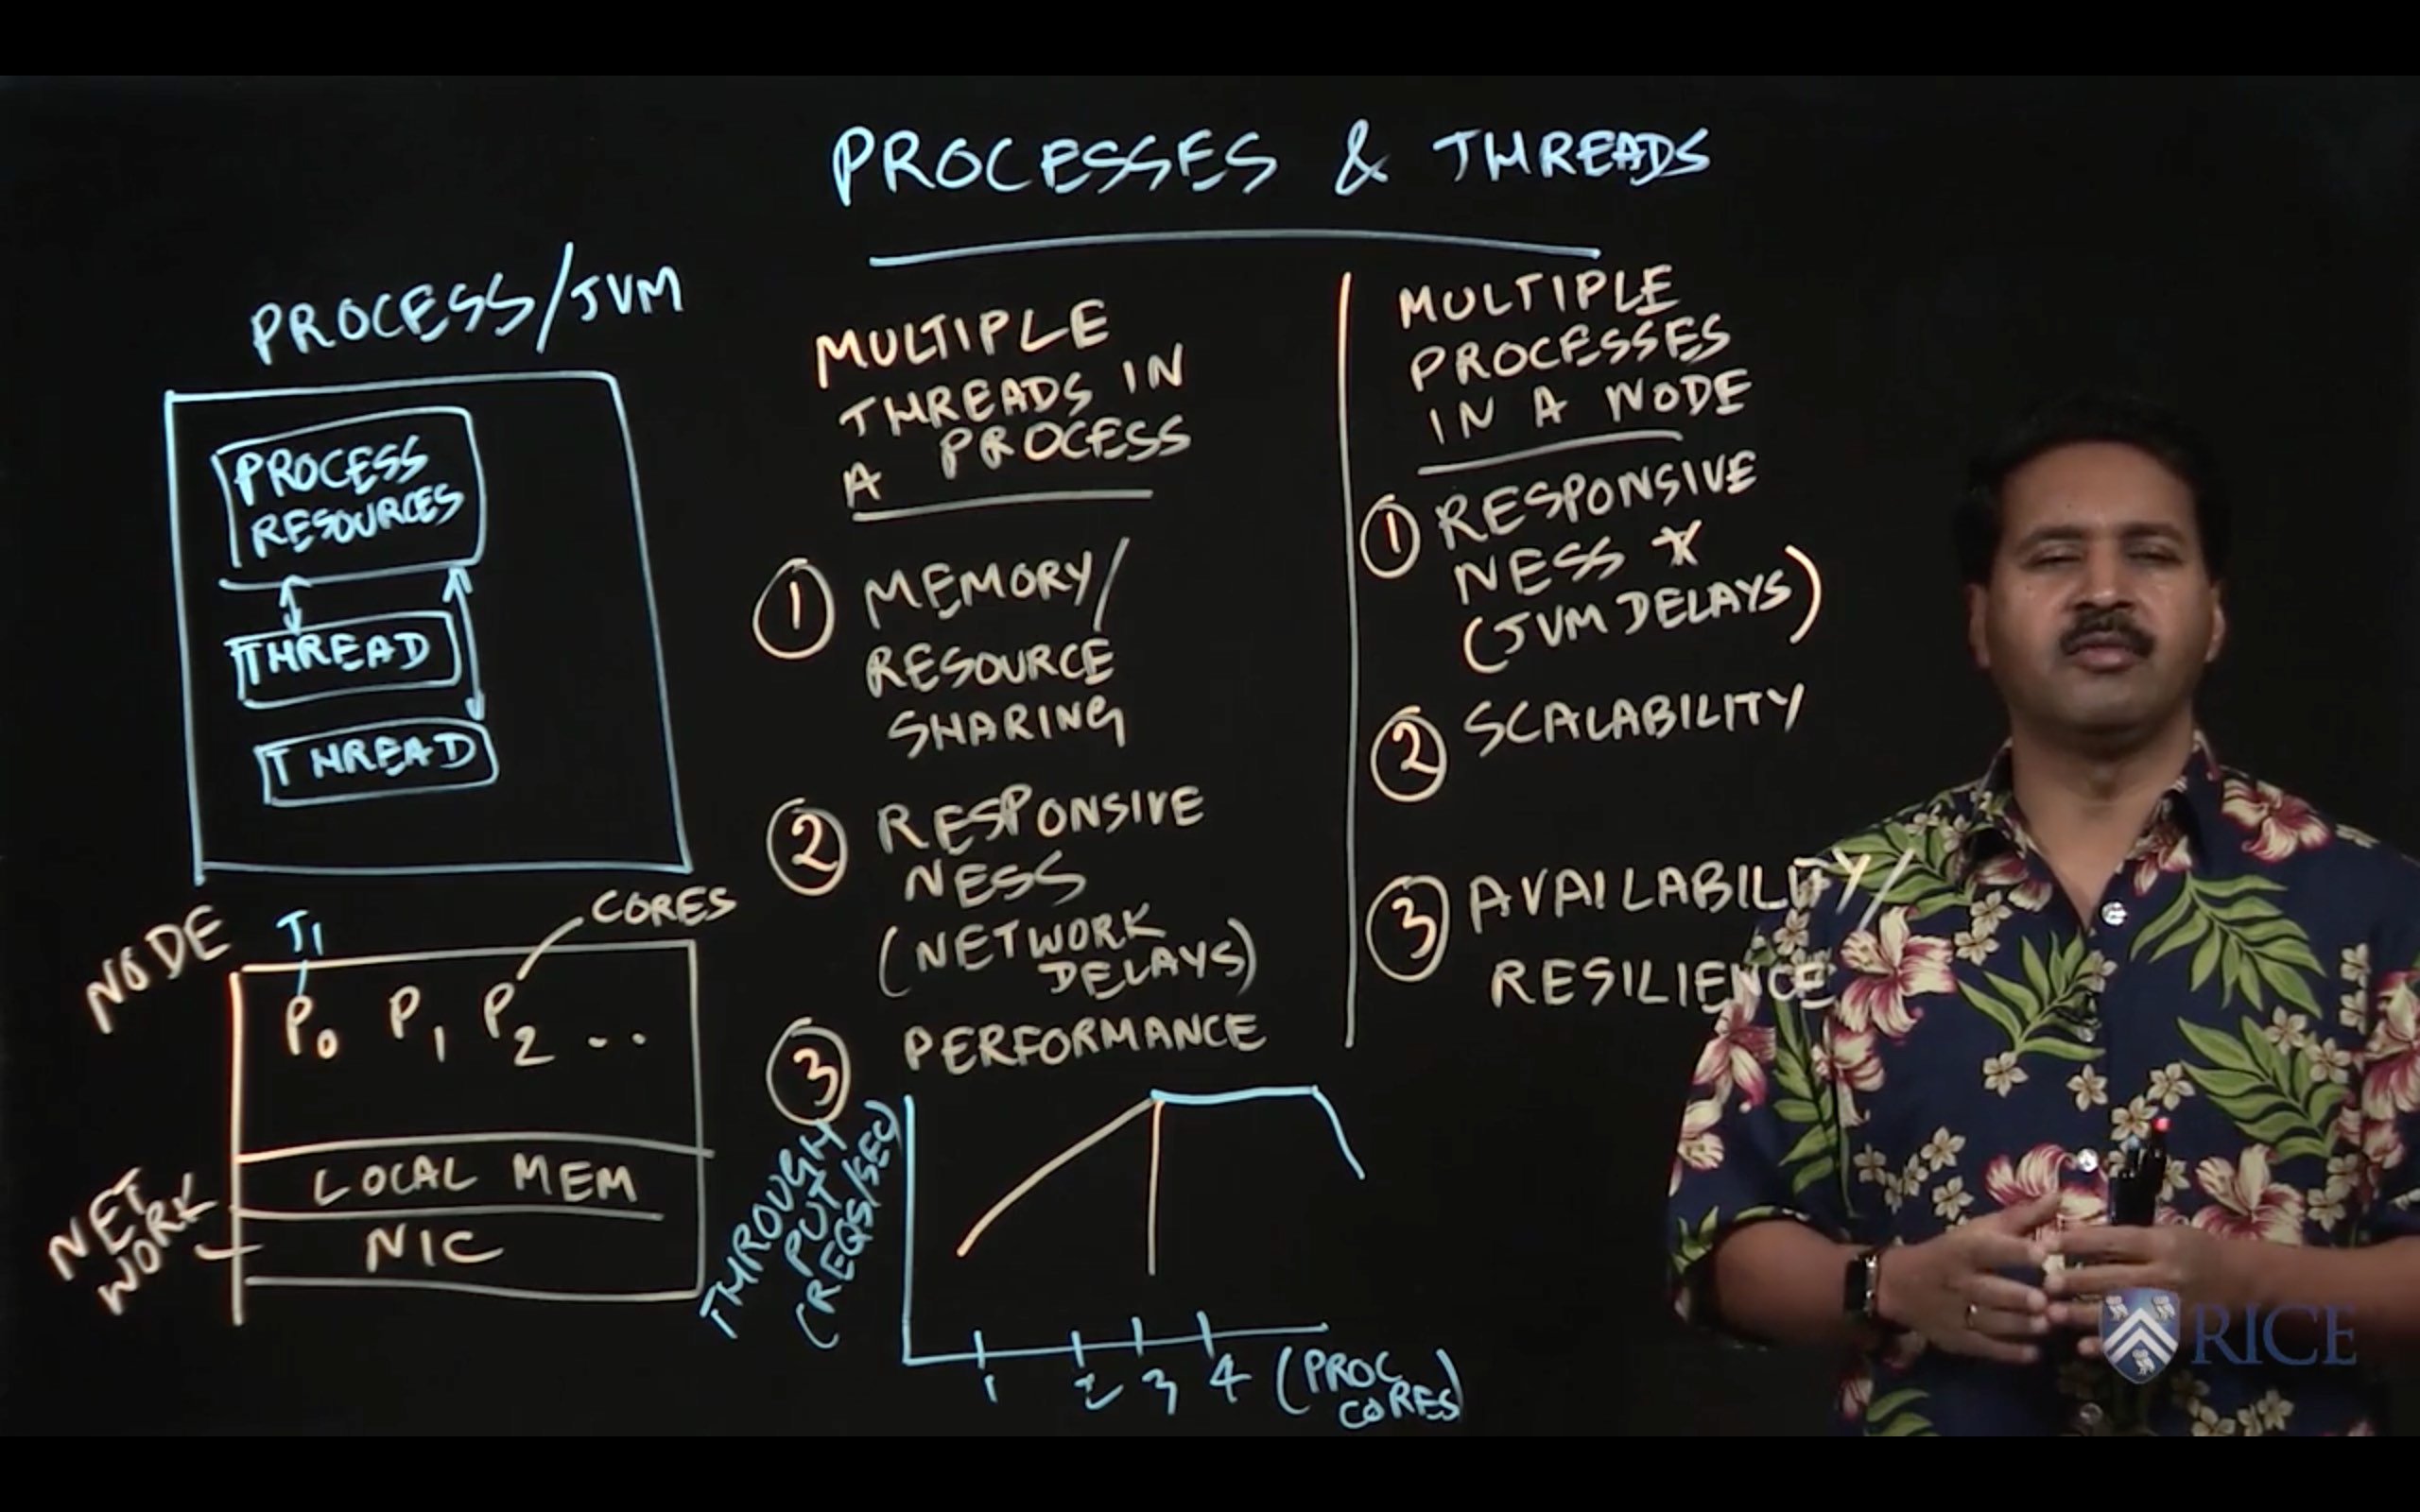 PROCESSES & THREADS
PROCESS/JVM
PROCESS
RESOURCES
THREAD
THREAD
NODE
T1
CORES
P0 P1 P2 ..
LOCAL MEM
NET
WORK
NIC
MULTIPLE
THREADS IN
A PROCESS
1 MEMORY/
RESOURCE
SHARING
2 RESPONSIVE
NESS
(NETWORK
DELAYS)
3 PERFORMANCE
THROUGH
PUT
(REQS/SEC)
1 2 3 4 (PROC
CORES)
MULTIPLE
PROCESSES
IN A NODE
1 RESPONSIVE
NESS *
(JVM DELAYS)
2 SCALABILITY
3 AVAILABILITY/
RESILIENCE
RICE